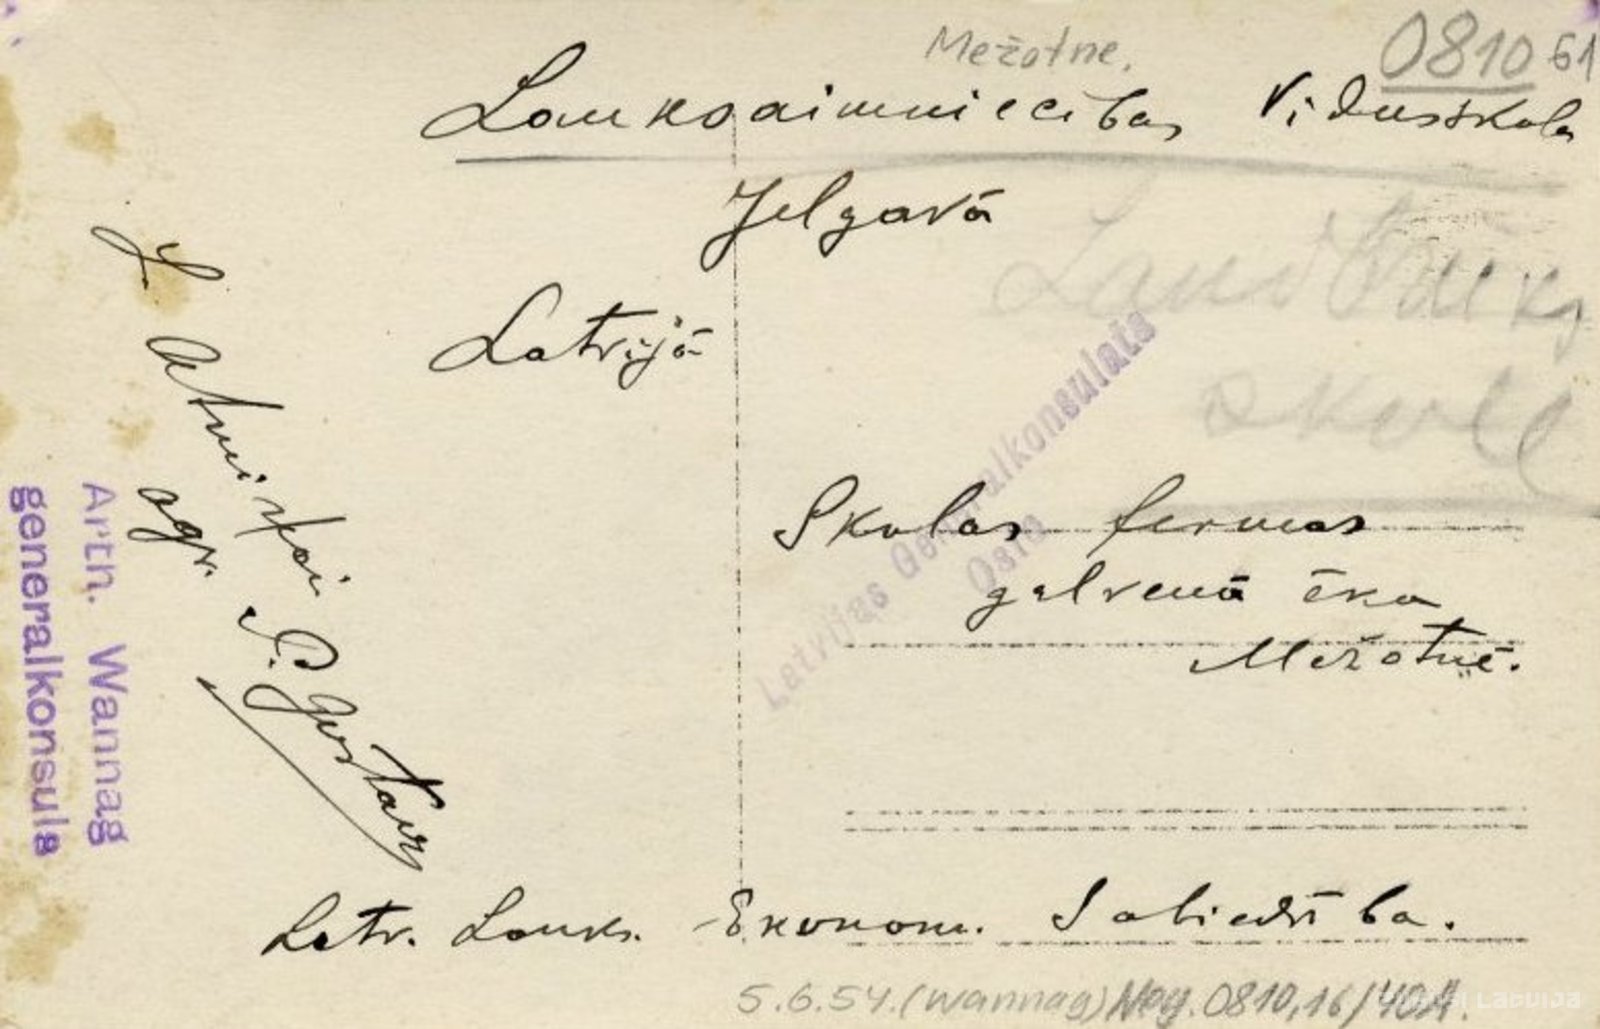 Mežotne.
0810 61
Lauksaimniecības Vidusskola
Jelgavā
Latvijā
Skolas fermas
galvenā ēka
Mežotnē.
Latvijas Generalkonsulata
Oslo
agr. P. Gustavs
Arth. Wannag
generalkonsuls
Latv. Lauks. Ekonom. Sabiedrība.
5.6.54. (Wannag) Nog. 0810,16/40A.